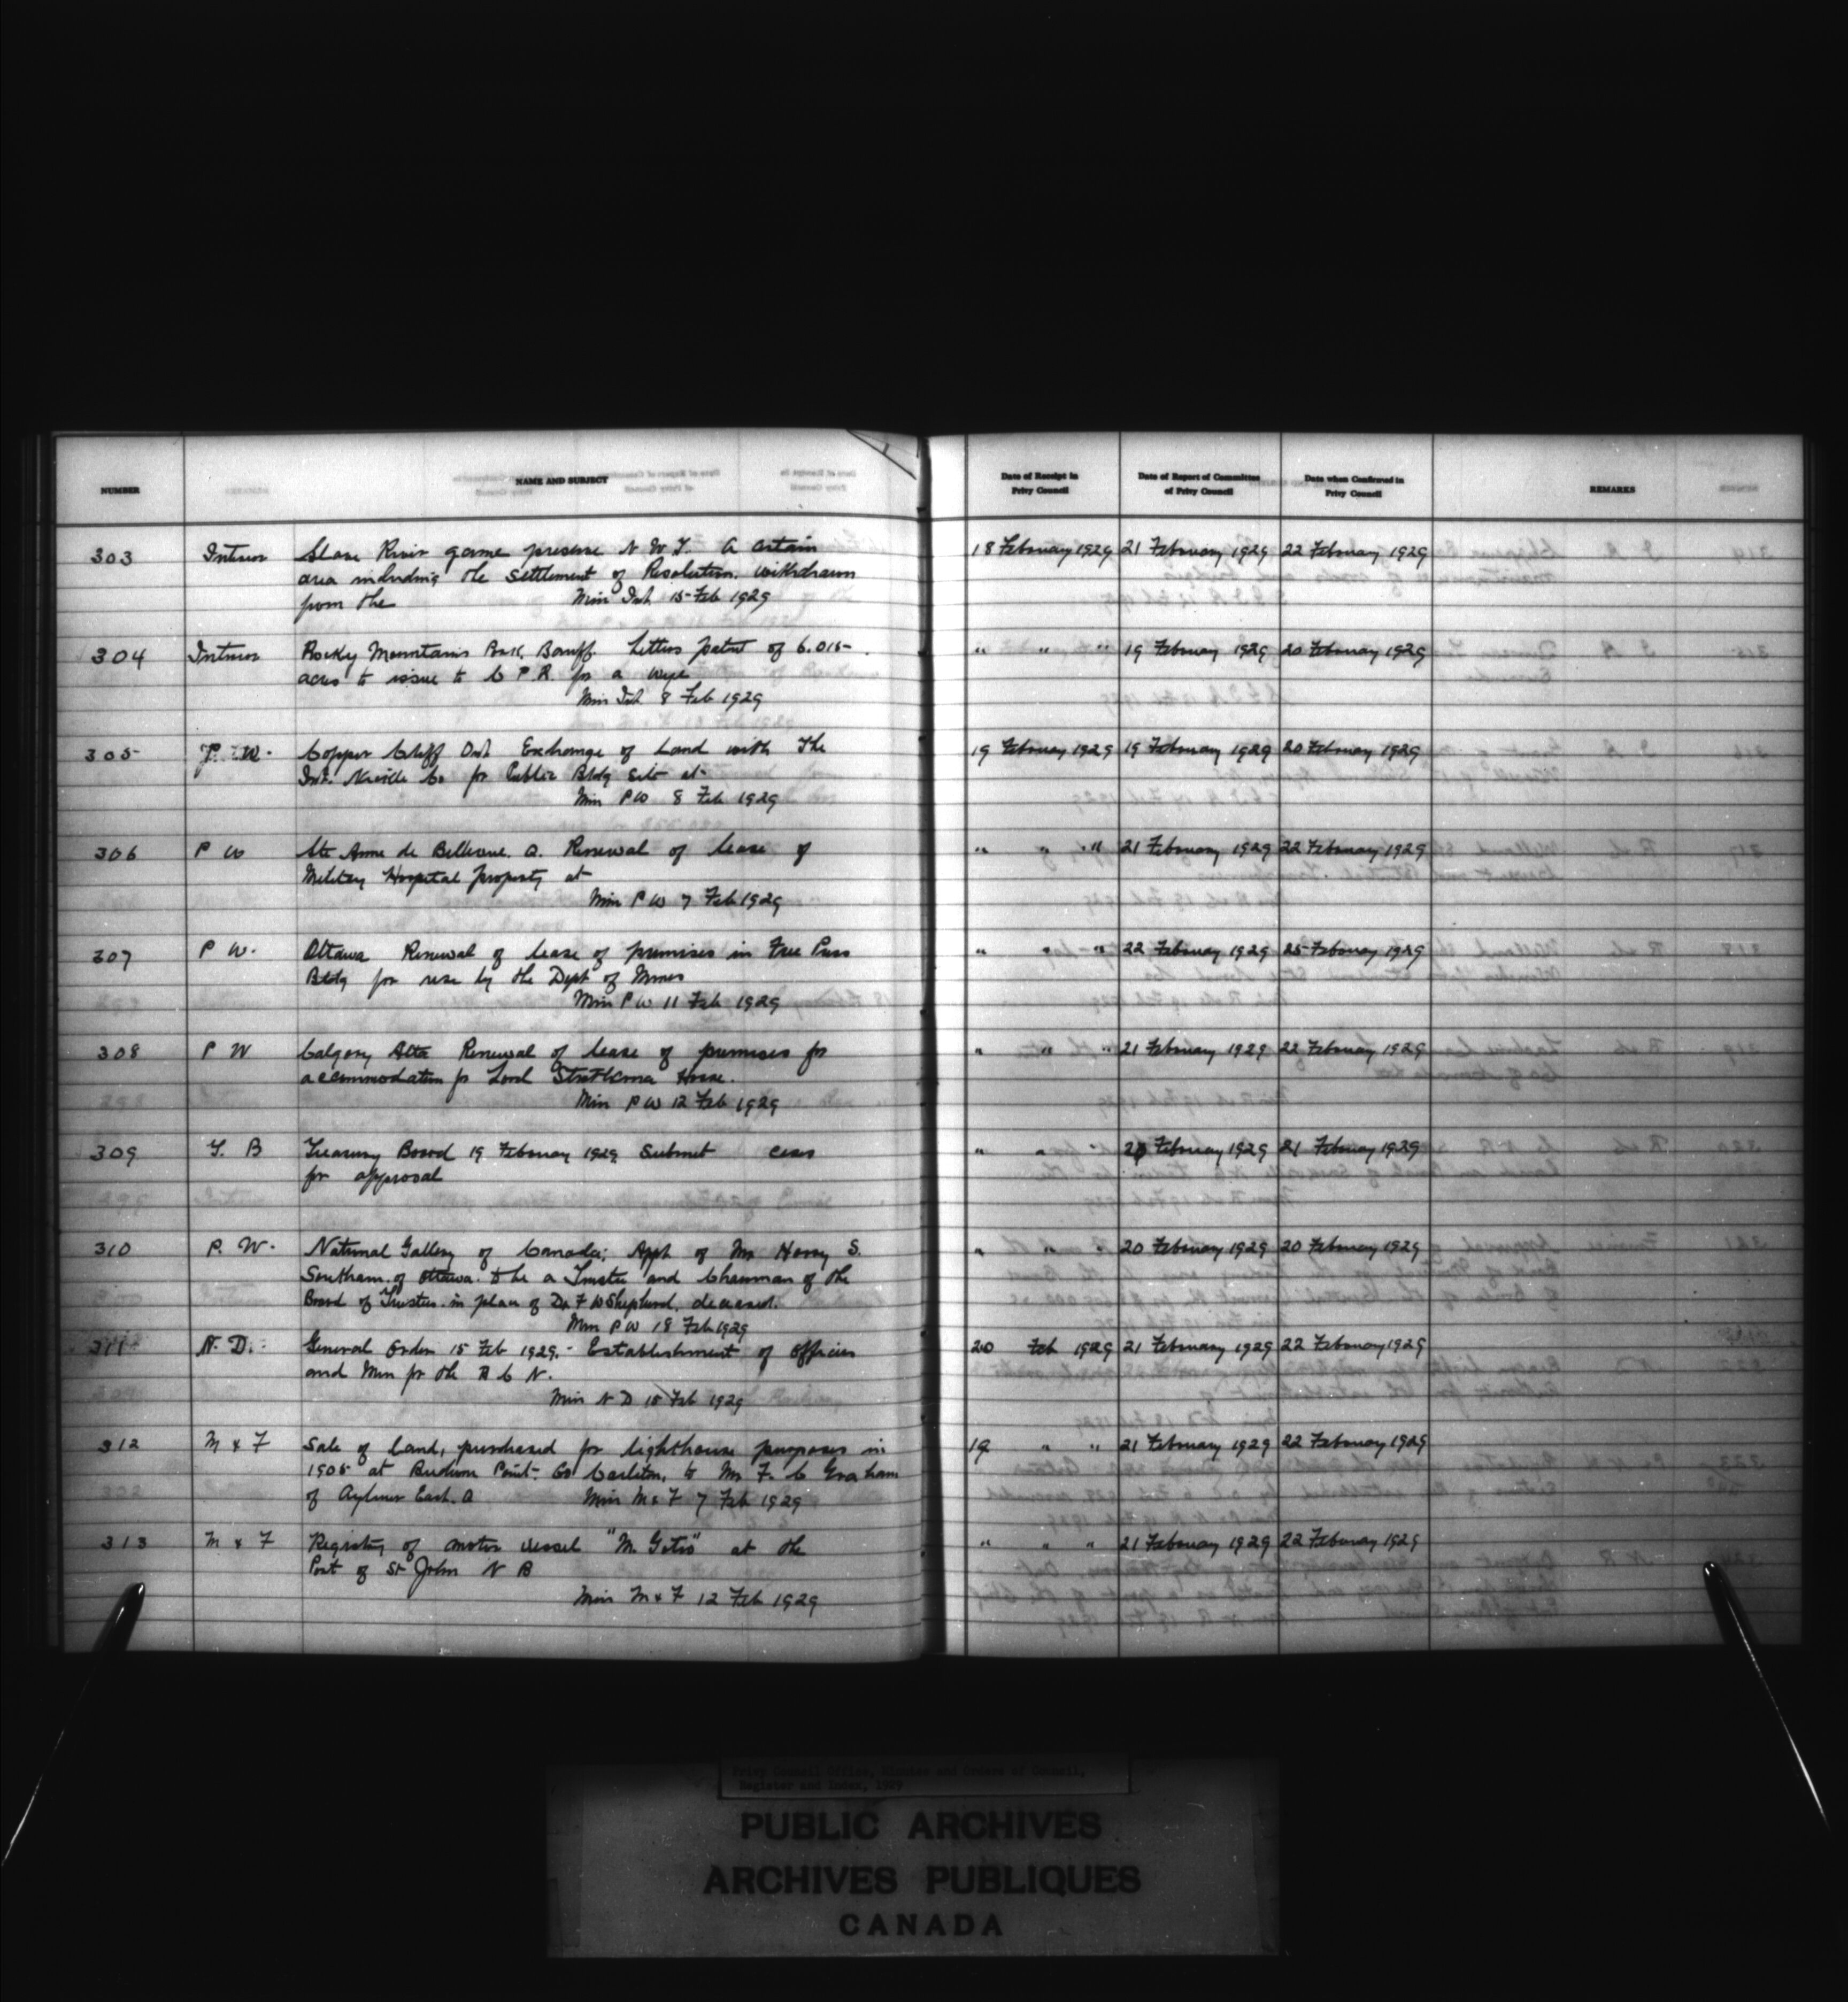 NUMBER NAME AND SUBJECT Date of Receipt in Privy Council Date of Report of Committee of Privy Council Date when Confirmed in Privy Council REMARKS
303 Interior Slave River game preserve N W T. A certain 18 February 1929 21 February 1929 22 February 1929
area including the settlement of Resolution. withdrawn
from the Min Int 15 Feb 1929
304 Interior Rocky Mountains Park, Banff. Letters patent of 6.015 " " " 19 February 1929 20 February 1929
acres to issue to C P.R. for a wye
Min Int 8 Feb 1929
305 P. W. Copper Cliff Ont Exchange of Land with the 19 February 1929 19 February 1929 20 February 1929
Int. Nickle Co for Public Bldg site at
Min PW 8 Feb 1929
306 P W Ste Anne de Bellevue. Q. Renewal of lease of " " " 21 February 1929 22 February 1929
Military Hospital property at
Min P W 7 Feb 1929
307 P W. Ottawa Renewal of lease of premises in Free Press " " " 22 February 1929 25 February 1929
Bldg for use by the Dept of Mines
Min P W 11 Feb 1929
308 P W Calgary Alta Renewal of lease of premises for " " " 21 February 1929 22 February 1929
accommodation for Lord Strathcona Horse.
Min P W 12 Feb 1929
309 T. B Treasury Board 19 February 1929 Submit cases " " " 20 February 1929 21 February 1929
for approval
310 P. W. National Gallery of Canada; Appt of Mr Harry S. " " " 20 February 1929 20 February 1929
Southam. of Ottawa. to be a Trustee and Chairman of the
Board of Trustees. in place of Dr. F W Shepherd. deceased.
Min P W 18 Feb 1929
311 N. D. General Order 15 Feb 1929. - Establishment of officers 20 Feb 1929 21 February 1929 22 February 1929
and Men for the R C N.
Min N D 15 Feb 1929
312 M & F Sale of land, purchased for lighthouse purposes in 19 " " 21 February 1929 22 February 1929
1905 at Point. Co Carleton, to Mr F. C Graham
of Aylmer East. Q Min M & F 7 Feb 1929
313 M & F Registry of motor vessel at the " " " 21 February 1929 22 February 1929
Port of St John N B
Min M & F 12 Feb 1929
Privy Council Office, Minutes and Orders of Council,
Register and Index, 1929
PUBLIC ARCHIVES
ARCHIVES PUBLIQUES
CANADA